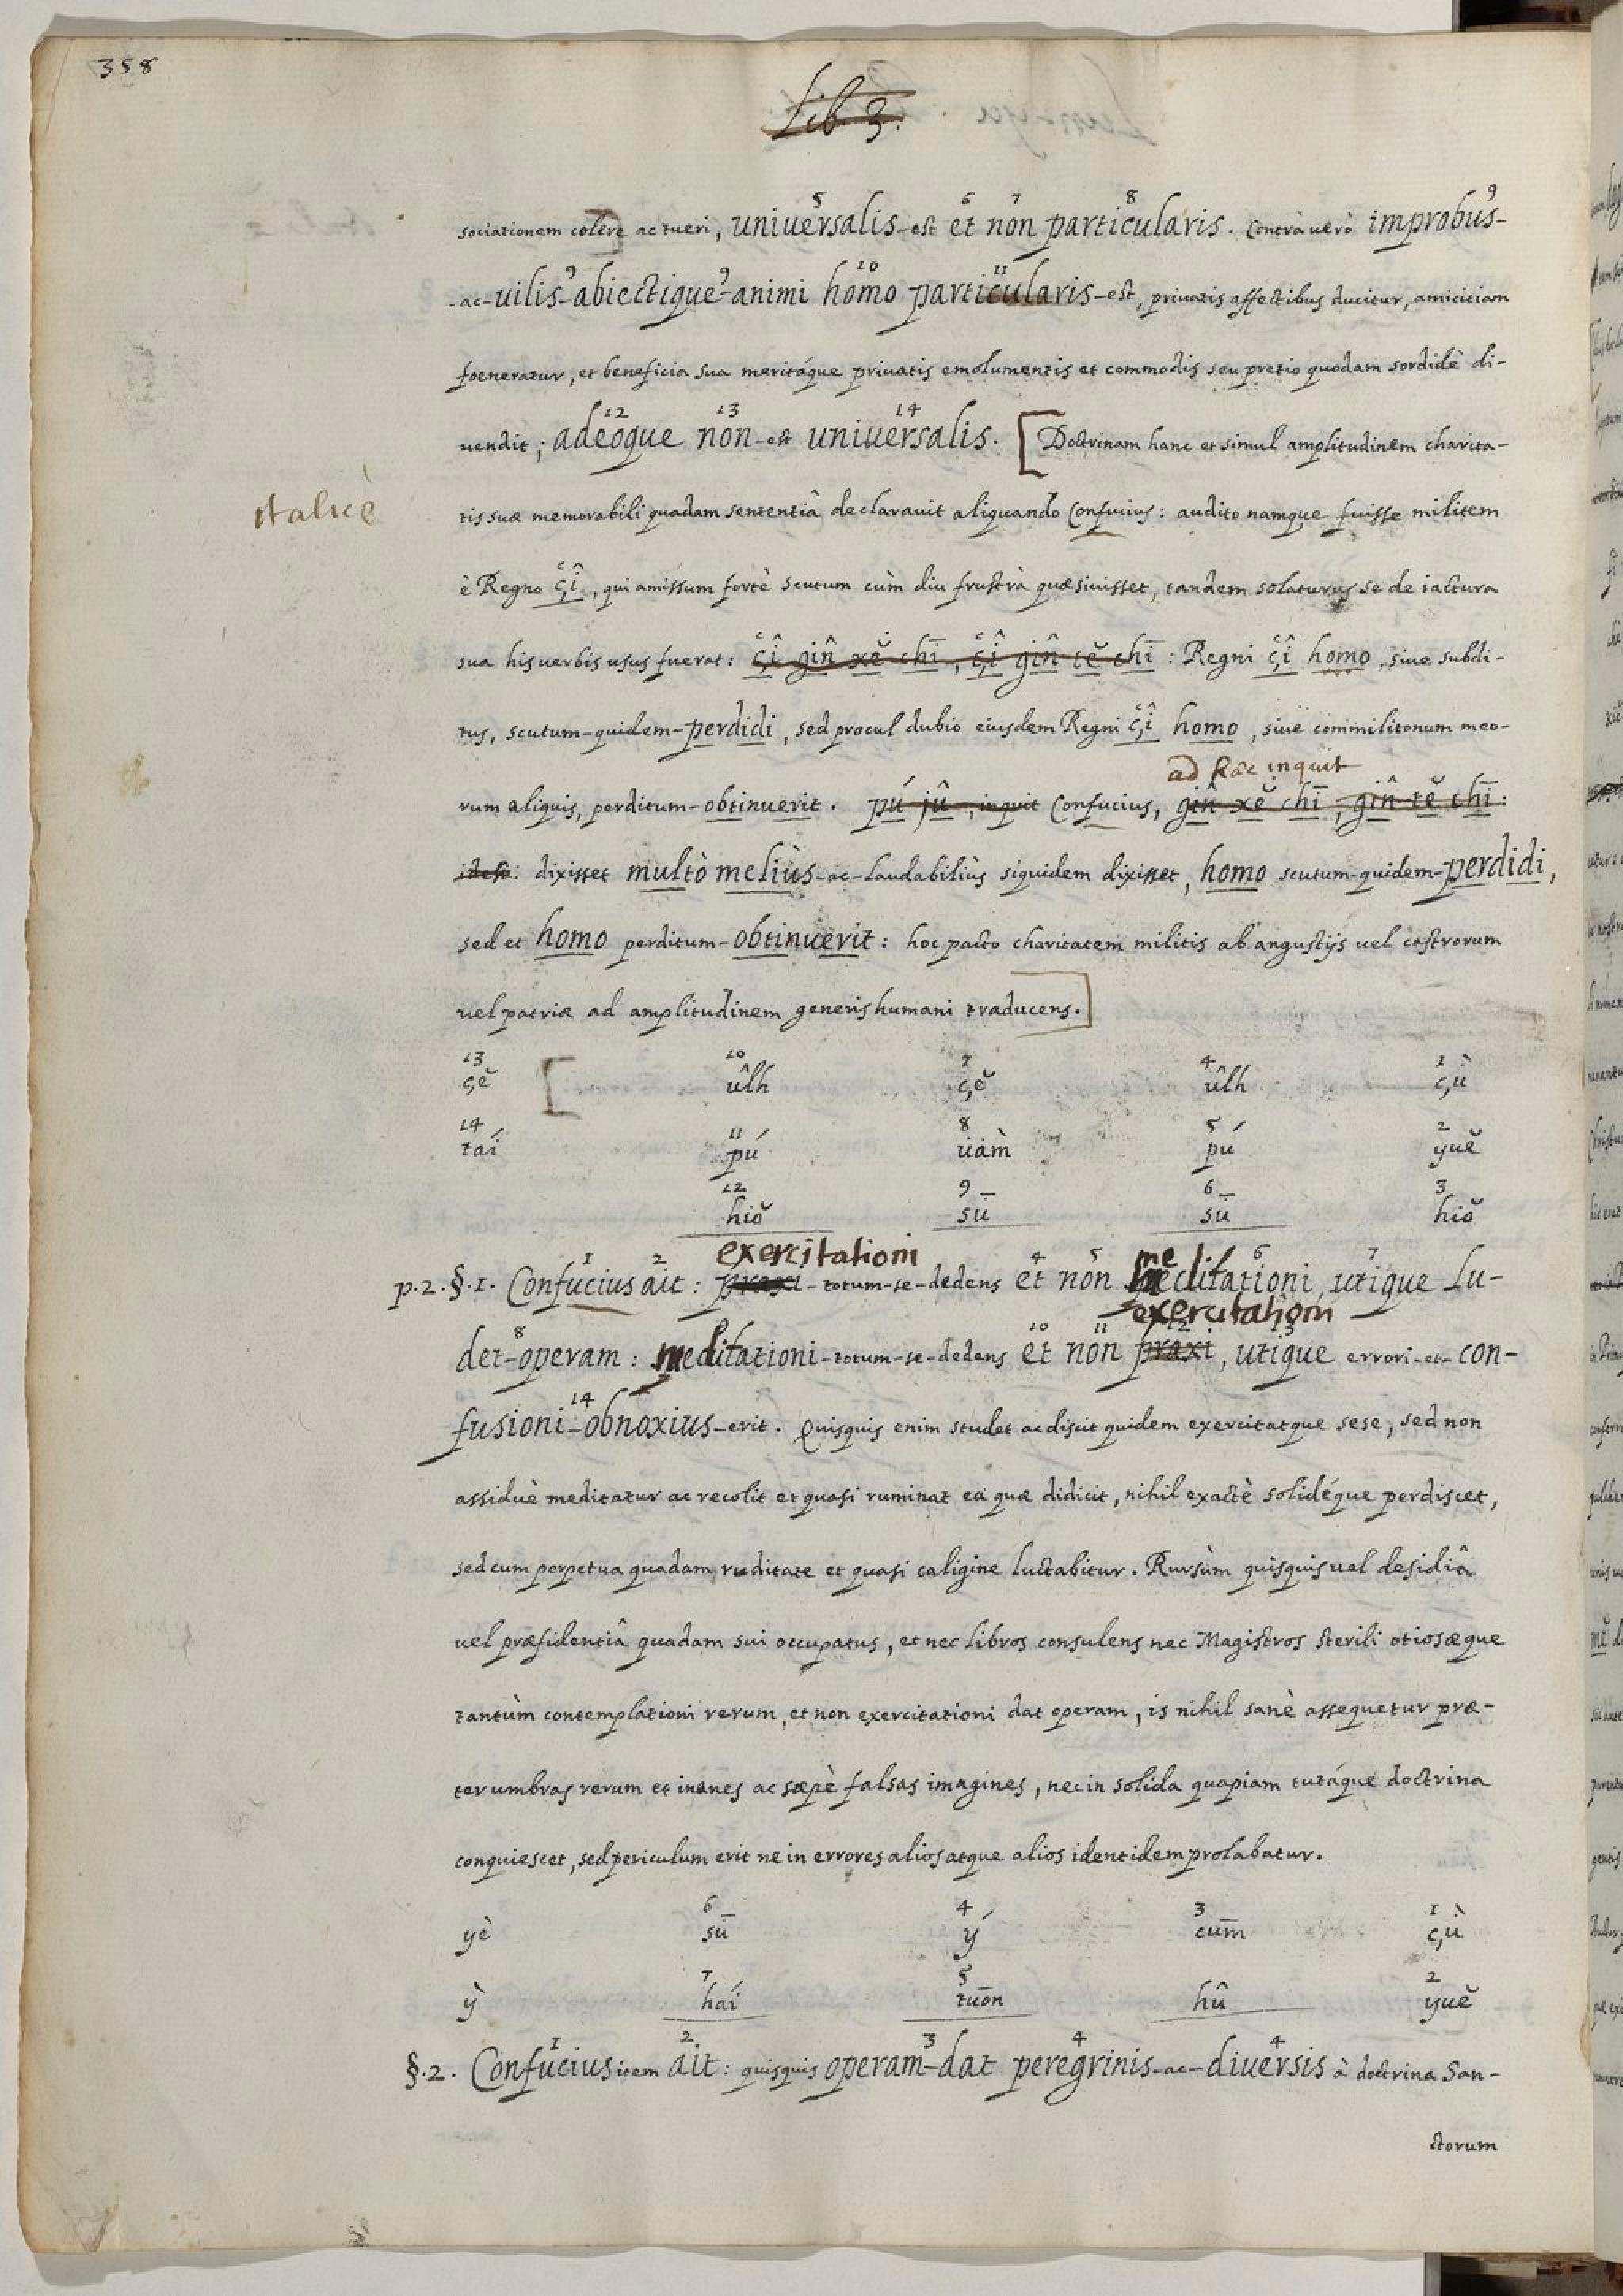 358
Lib. 3.
sociationem colere ac tueri, universalis-est et non particularis. Contrà verò improbus-
5 6 7 8 9
-ac-vilis-abiectique-animi homo particularis-est, privatis affectibus ducitur, amicitiam
9 9 10 11
foeneratur, et beneficia sua meritáque privatis emolumentis et commodis seu pretio quodam sordidè di-
12 13 14
vendit; adeòque non-est universalis. [Doctrinam hanc et simul amplitudinem charita-
italicè
tis suæ memorabili quadam sententiâ declaravit aliquando Confucius: audito namque fuisse militem
è Regno çî, qui amissum fortè scutum cùm diu frustrà quæsivisset, tandem solaturus se de iactura
sua his verbis usus fuerat: çî gîn xĕ chī, çî gîn tĕ chī: Regni çî homo, sive subdi-
tus, scutum-quidem-perdidi, sed procul dubio eiusdem Regni çî homo, sive commilitonum meo-
ad hæc inquit
rum aliquis, perditum-obtinuerit. pú jû, inquit Confucius, gîn xĕ chī, gîn tĕ chī:
idest: dixisset multò meliùs-ac-laudabiliùs siquidem dixisset, homo scutum-quidem-perdidi,
sed et homo perditum-obtinuerit: hoc pacto charitatem militis ab angustijs vel castrorum
vel patriæ ad amplitudinem generis humani traducens.]
13 10 7 4 1
çĕ [ ûlh çĕ ûlh çù
14 11 8 5 2
tái pú vàm pú yuĕ
12 9 6 3
hiŏ sū sū hiŏ
exercitationi me
1 2 4 5 6 7
p.2.§.1. Confucius ait: praxi-totum-se-dedens et non meditationi, utique lu-
exercitationi
8 10 11 12 13
det-operam: meditationi-totum-se-dedens et non praxi, utique errori-et-con-
14
fusioni-obnoxius-erit. Quisquis enim studet ac discit quidem exercitatque sese, sed non
assiduè meditatur ac recolit et quasi ruminat ea quæ didicit, nihil exactè solidéque perdiscet,
sed cum perpetua quadam ruditate et quasi caligine luctabitur. Rursùm quisquis vel desidiâ
vel præfidentiâ quadam sui occupatus, et nec libros consulens nec Magistros sterili otiosæque
tantùm contemplationi rerum, et non exercitationi dat operam, is nihil sanè assequetur præ-
ter umbras rerum et inanes ac sæpè falsas imagines, nec in solida quapiam tutáque doctrina
conquiescet, sed periculum erit ne in errores alios atque alios identidem prolabatur.
6 4 3 1
yè sū ý cūm çù
7 5 2
ỳ hái tuōn hû yuĕ
1 2 3 4 4
§.2. Confucius item ait: quisquis operam-dat peregrinis-ac-diversis à doctrina San-
ctorum